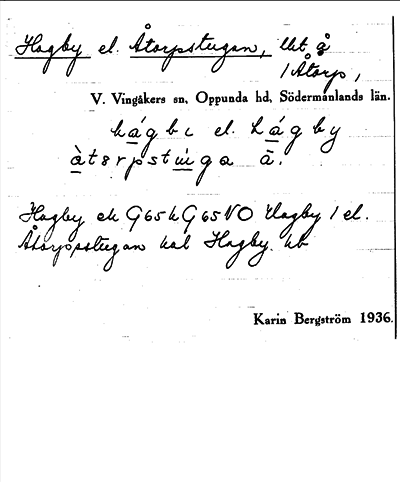 Hagby el. Åtorpstugan, lht å
/Åtorp,
V. Vingåkers sn, Oppunda hd, Södermanlands län.
hágbi el. hágby
àtərpstúga ā.
Hagby ek G65h G65NO Hagby / el.
Åtorpstugan kal Hagby. hb
Karin Bergström 1936.